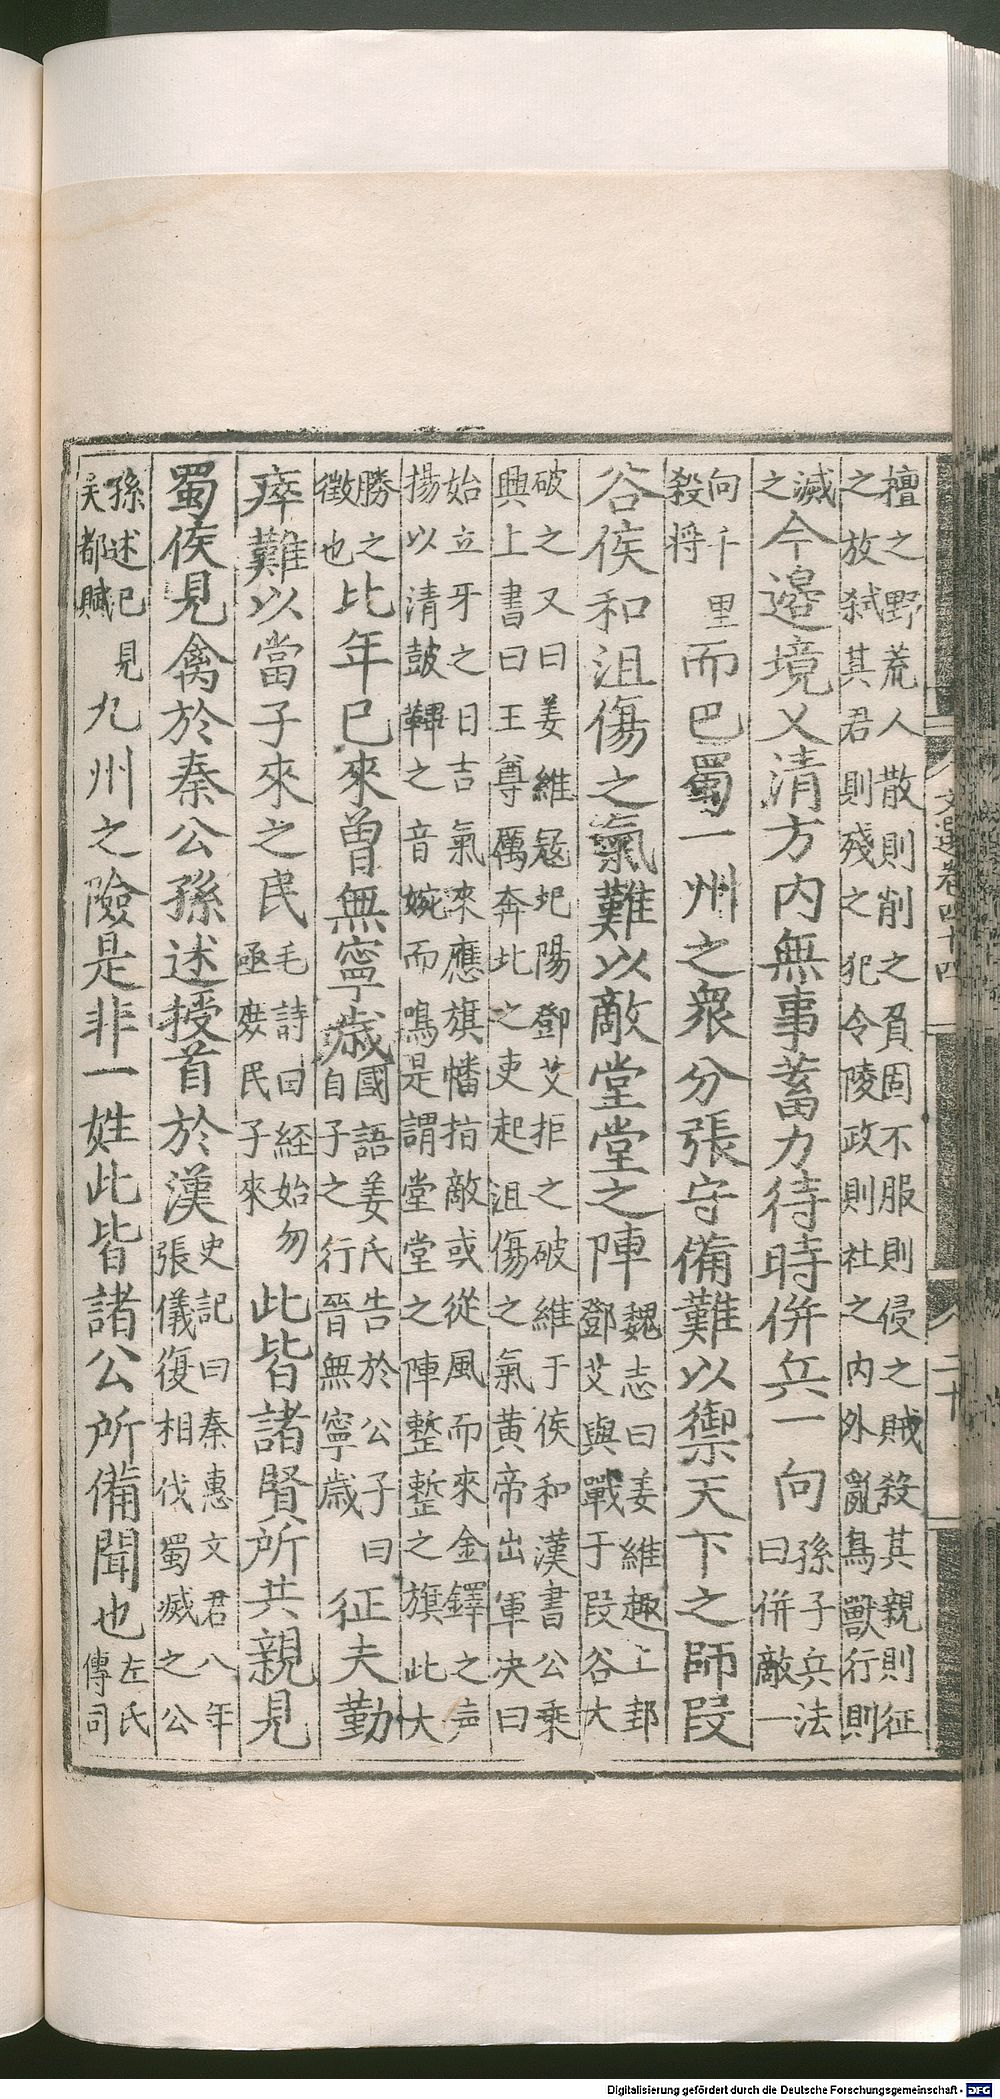 文選卷四十四
二十
壇之野荒人散則削之負固不服則侵之賊殺其親則征
之放弑其君則殘之犯令陵政則社之內外亂鳥獸行則
滅
之
今邊境乂清方內無事蓄力待時併兵一向
孫子兵法
曰併敵一
向千里
殺將
而巴蜀一州之衆分張守備難以禦天下之師段
谷侯和沮傷之氣難以敵堂堂之陣
魏志曰姜維趣上邽
鄧艾與戰于段谷大
破之又曰姜維寇圯陽鄧艾拒之破維于侯和漢書公乘
興上書曰王尊厲奔北之吏起沮傷之氣黃帝出軍決曰
始立牙之日吉氣來應旗幡指敵或從風而來金鐸之声
揚以清鼓鞞之音婉而鳴是謂堂堂之陣整整之旗此大
勝之
徵也
比年已來曾無寧歲
國語姜氏告於公子曰
自子之行晉無寧歲
征夫勤
瘁難以當子來之民
毛詩曰経始勿
亟庶民子來
此皆諸賢所共親見
蜀侯見禽於秦公孫述授首於漢
史記曰秦惠文君八年
張儀復相伐蜀滅之公
孫述已見
吴都賦
九州之險是非一姓此皆諸公所備聞也
左氏
傳司
Digitalisierung gefördert durch die Deutsche Forschungsgemeinschaft - DFG